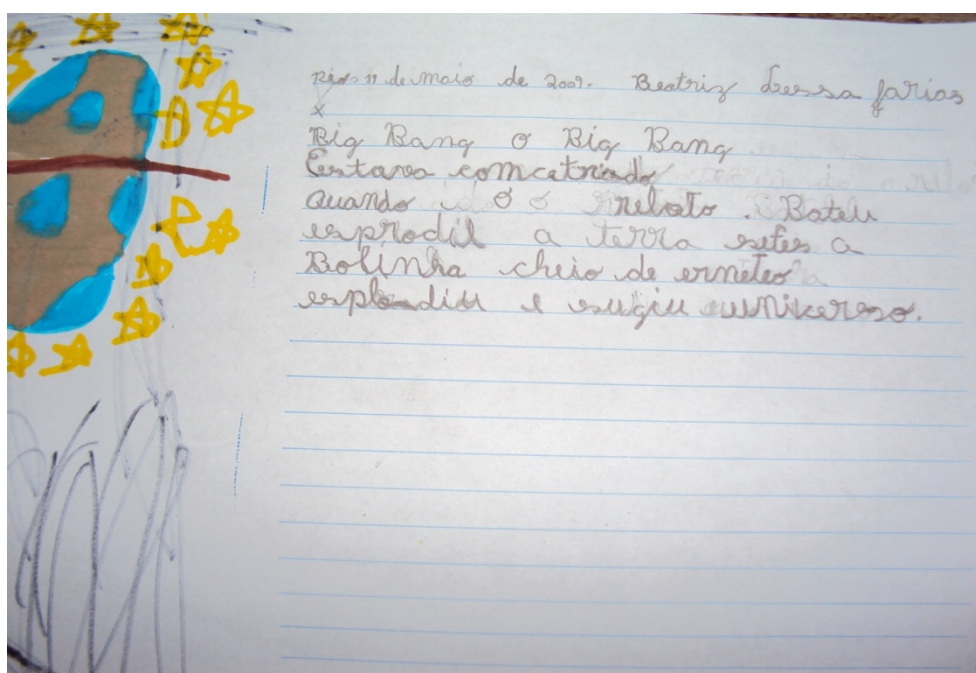 Rio. 11 de maio de 2009. Beatriz farias
x
Big Bang O Big Bang
Estava comcatriado
Quando o ó relato. Bateu
esprodil a terra setes a
Bolinha cheio de erneteo
esplodiu e esugiu uuniverso.